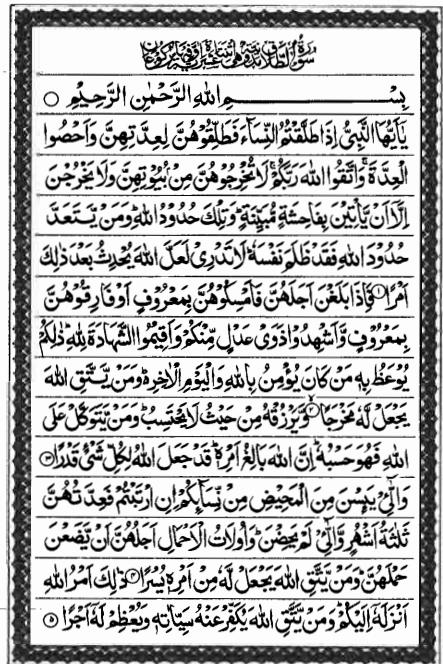 سُورَةُ الطَّلَاقِ مَدَنِيَّةٌ وَهِيَ اثْنَتَا عَشْرَةَ اٰيَةً وَفِيهَا رُكُوعَانِ
بِسْمِ اللهِ الرَّحْمٰنِ الرَّحِيْمِ
يٰٓاَيُّهَا النَّبِيُّ اِذَا طَلَّقْتُمُ النِّسَآءَ فَطَلِّقُوْهُنَّ لِعِدَّتِهِنَّ وَاَحْصُوا
الْعِدَّةَ ۚ وَاتَّقُوا اللهَ رَبَّكُمْ ۚ لَا تُخْرِجُوْهُنَّ مِنْۢ بُيُوْتِهِنَّ وَلَا يَخْرُجْنَ
اِلَّآ اَنْ يَّاْتِيْنَ بِفَاحِشَةٍ مُّبَيِّنَةٍ ؕ وَتِلْكَ حُدُوْدُ اللهِ ؕ وَمَنْ يَّتَعَدَّ
حُدُوْدَ اللهِ فَقَدْ ظَلَمَ نَفْسَهٗ ؕ لَا تَدْرِيْ لَعَلَّ اللهَ يُحْدِثُ بَعْدَ ذٰلِكَ
اَمْرًا ۝۱ فَاِذَا بَلَغْنَ اَجَلَهُنَّ فَاَمْسِكُوْهُنَّ بِمَعْرُوْفٍ اَوْ فَارِقُوْهُنَّ
بِمَعْرُوْفٍ وَّاَشْهِدُوْا ذَوَيْ عَدْلٍ مِّنْكُمْ وَاَقِيْمُوا الشَّهَادَةَ لِلّٰهِ ؕ ذٰلِكُمْ
يُوْعَظُ بِهٖ مَنْ كَانَ يُؤْمِنُ بِاللهِ وَالْيَوْمِ الْاٰخِرِ ؕ۬ وَمَنْ يَّتَّقِ اللهَ
يَجْعَلْ لَّهٗ مَخْرَجًا ۝۲ وَّيَرْزُقْهُ مِنْ حَيْثُ لَا يَحْتَسِبُ ؕ وَمَنْ يَّتَوَكَّلْ عَلَى
اللهِ فَهُوَ حَسْبُهٗ ؕ اِنَّ اللهَ بَالِغُ اَمْرِهٖ ؕ قَدْ جَعَلَ اللهُ لِكُلِّ شَيْءٍ قَدْرًا ۝۳
وَالّٰٓـِٔيْ يَئِسْنَ مِنَ الْمَحِيْضِ مِنْ نِّسَآئِكُمْ اِنِ ارْتَبْتُمْ فَعِدَّتُهُنَّ
ثَلٰثَةُ اَشْهُرٍ ۙ وَّالّٰٓـِٔيْ لَمْ يَحِضْنَ ؕ وَاُولَاتُ الْاَحْمَالِ اَجَلُهُنَّ اَنْ يَّضَعْنَ
حَمْلَهُنَّ ؕ وَمَنْ يَّتَّقِ اللهَ يَجْعَلْ لَّهٗ مِنْ اَمْرِهٖ يُسْرًا ۝۴ ذٰلِكَ اَمْرُ اللهِ
اَنْزَلَهٗٓ اِلَيْكُمْ ؕ وَمَنْ يَّتَّقِ اللهَ يُكَفِّرْ عَنْهُ سَيِّاٰتِهٖ وَيُعْظِمْ لَهٗٓ اَجْرًا ۝۵